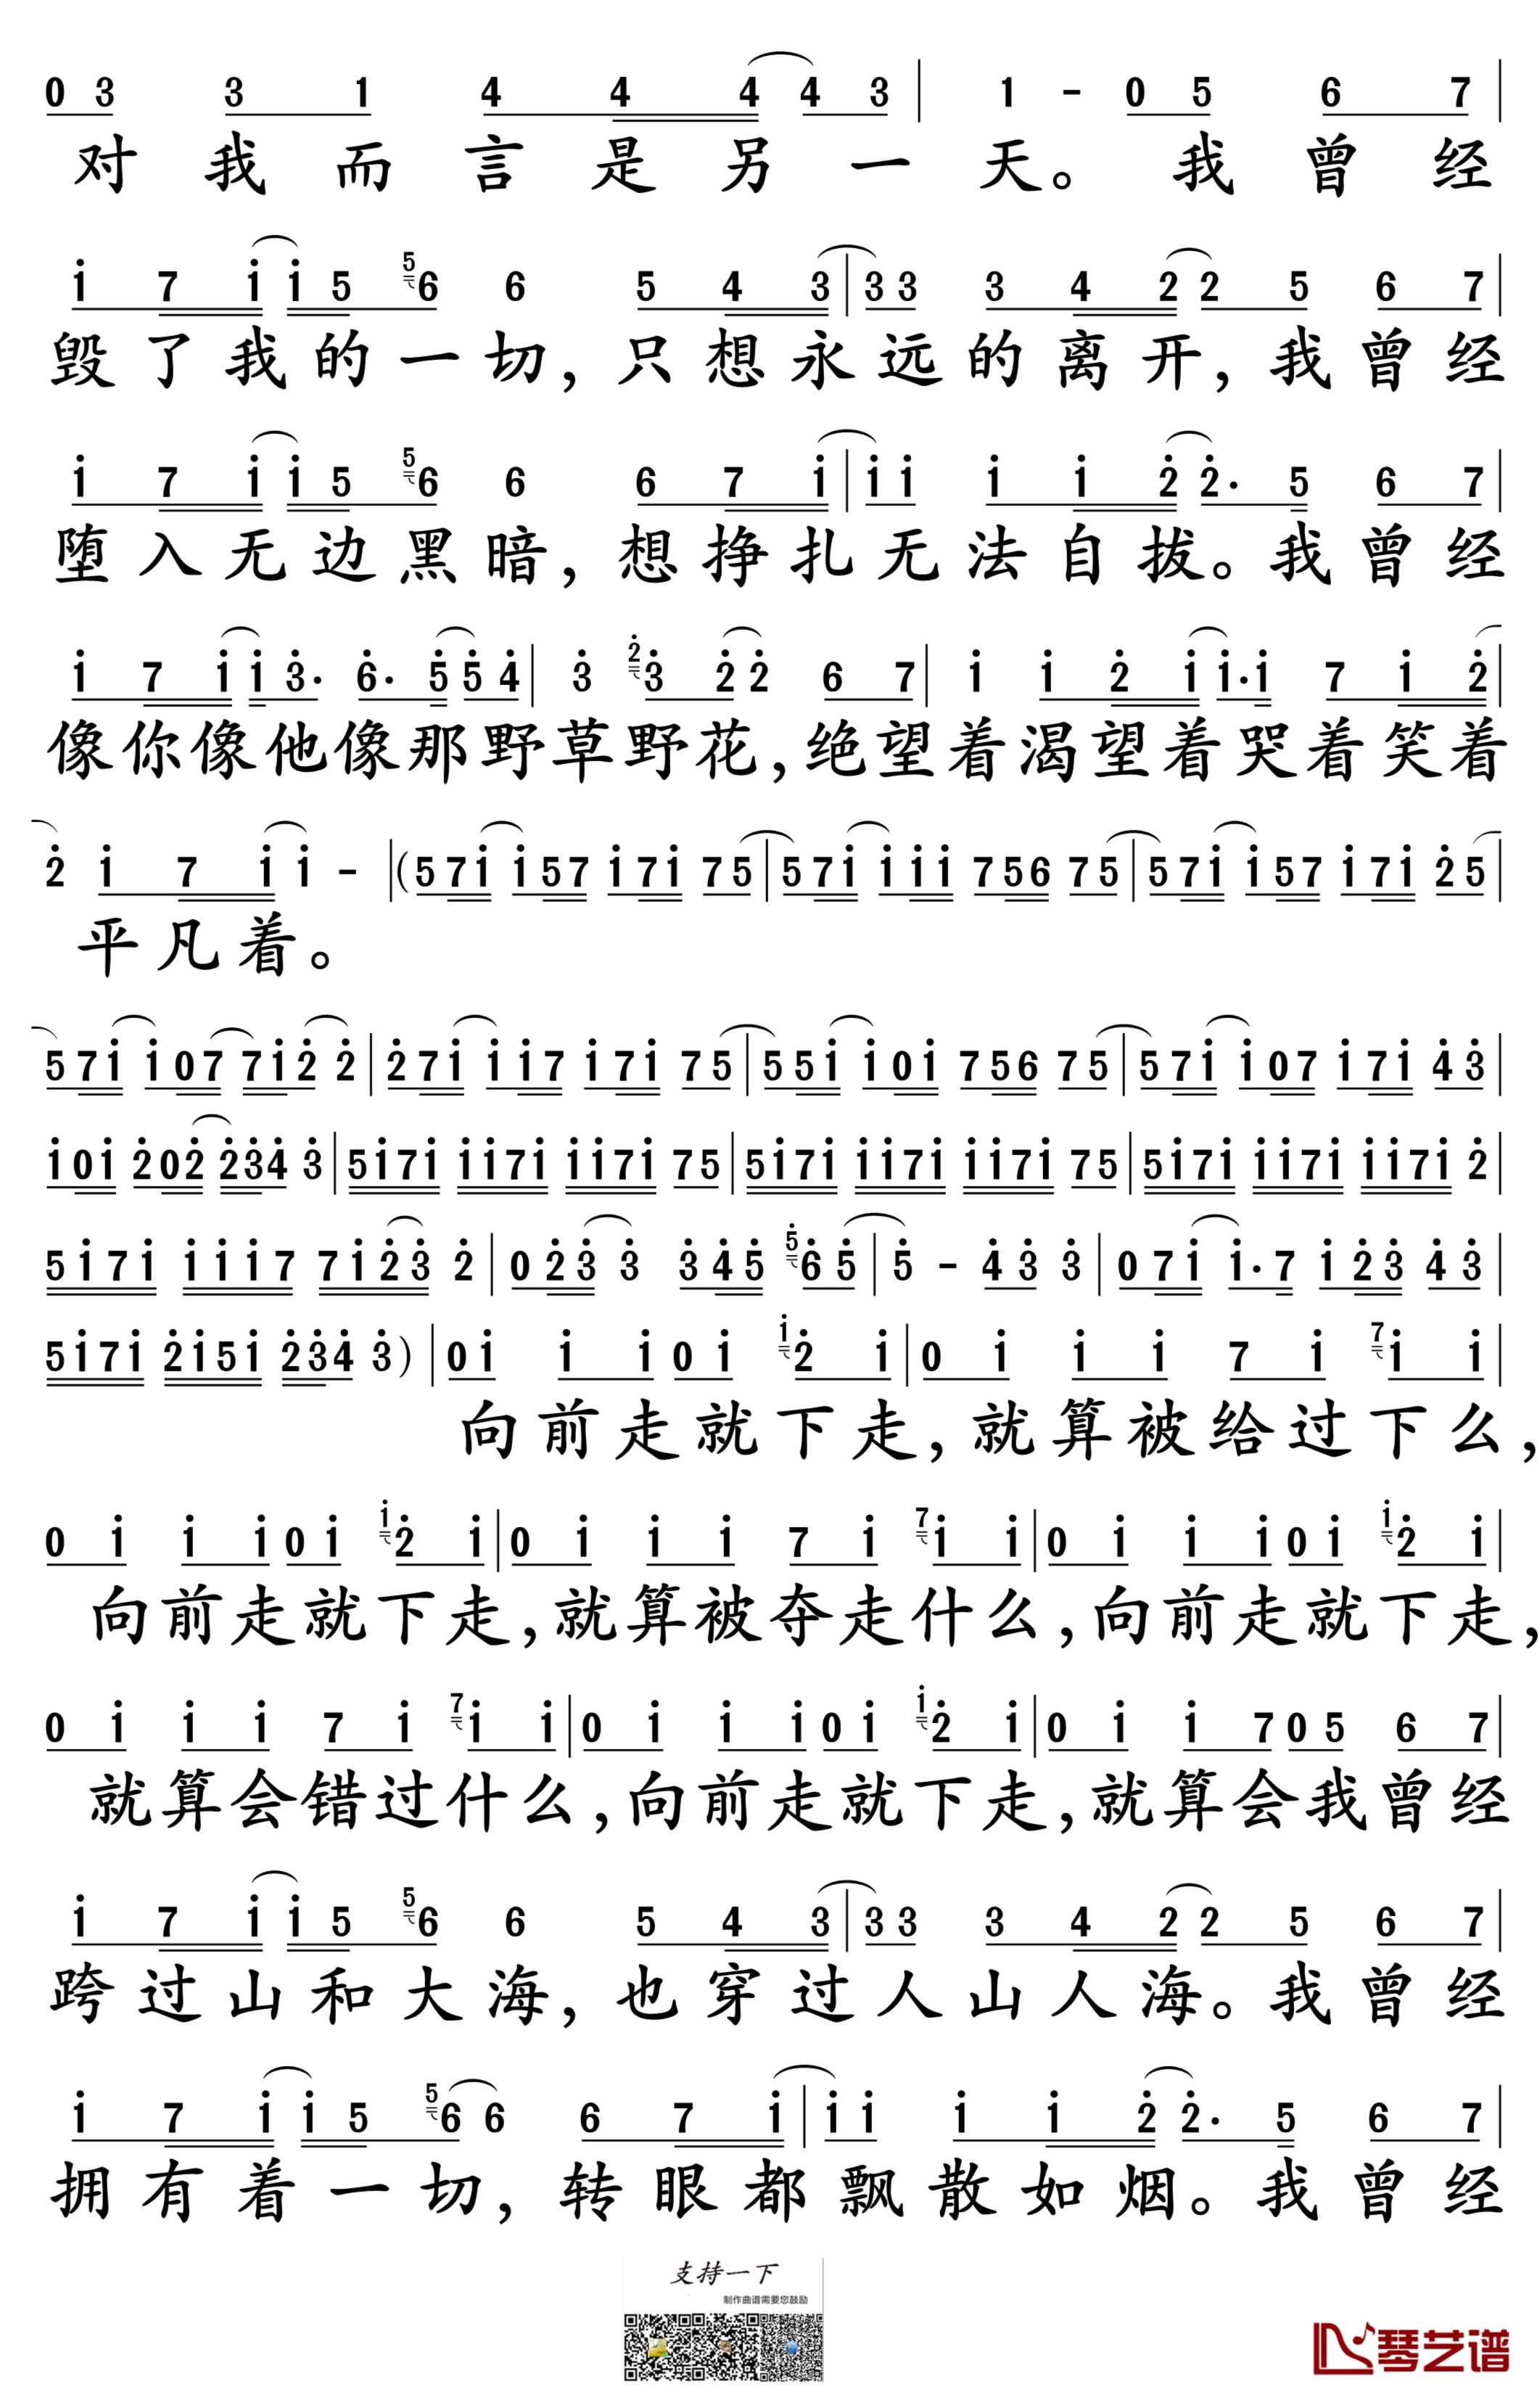 0 3 3 1 4 4 4 4 3 | 1 - 0 5 6 7 |
对我而言是另一天。我曾经
i 7 i i 5 5 6 6 5 4 3 | 3 3 3 4 2 2 5 6 7 |
毁了我的一切，只想永远的离开，我曾经
i 7 i i 5 5 6 6 6 7 i | i i i i 2̇ 2̇· 5 6 7 |
堕入无边黑暗，想挣扎无法自拔。我曾经
i 7 i i 3̇· 6̇· 5̇ 5̇ 4̇ | 3̇ 2̇ 3̇ 2̇ 2̇ 6 7 | i i 2̇ i i· i 7 i 2̇ |
像你像他像那野草野花，绝望着渴望着哭着笑着
2̇ i 7 i i - | (5 7 i i 5 7 i 7 i 7 5 | 5 7 i i i i 7 5 6 7 5 | 5 7 i i 5 7 i 7 i 2̇ 5 |
平凡着。
5 7 i i 0 7 7 i 2̇ 2̇ | 2̇ 7 i i i 7 i 7 i 7 5 | 5 5 i i 0 i 7 5 6 7 5 | 5 7 i i 0 7 i 7 i 4̇ 3̇ |
i 0 i 2̇ 0 2̇ 2̇ 3̇ 4̇ 3̇ | 5 i 7 i i i 7 i i i 7 i 7 5 | 5 i 7 i i i 7 i i i 7 i 7 5 | 5 i 7 i i i 7 i i i 7 i 2̇ |
5 i 7 i i i i 7 7 i 2̇ 3̇ 2̇ | 0 2̇ 3̇ 3̇ 3̇ 4̇ 5̇ 5̇ 6̇ 5̇ | 5̇ - 4̇ 3̇ 3̇ | 0 7 i i· 7 i 2̇ 3̇ 4̇ 3̇ |
5 i 7 i 2̇ i 5 i 2̇ 3̇ 4̇ 3̇) | 0 i i i 0 i i 2̇ i | 0 i i i 7 i 7 i i |
向前走就下走，就算被给过下么，
0 i i i 0 i i 2̇ i | 0 i i i 7 i 7 i i | 0 i i i 0 i i 2̇ i |
向前走就下走，就算被夺走什么，向前走就下走，
0 i i i 7 i 7 i i | 0 i i i 0 i i 2̇ i | 0 i i 7 0 5 6 7 |
就算会错过什么，向前走就下走，就算会我曾经
i 7 i i 5 5 6 6 5 4 3 | 3 3 3 4 2 2 5 6 7 |
跨过山和大海，也穿过人山人海。我曾经
i 7 i i 5 5 6 6 6 7 i | i i i i 2̇ 2̇· 5 6 7 |
拥有着一切，转眼都飘散如烟。我曾经
支持一下
制作曲谱需要您鼓励
琴艺谱